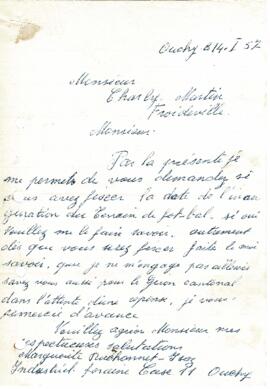 Ouchy le 14. I 57
Monsieur
Charly Martin
Froideville.
Monsieur.
Par la présente je
me permets de vous demandez si
vous avez fixer la date de l'inau
guration du Terrain de football, si oui
Veuillez me le faire savoir, autrement
dès que vous serez fixer faite le moi
savoir, que je ne m'engage pas ailleurs
savez vous aussi pour le Giron cantonal
dans l'attente d'une réponse, je vous
remercie d'avance
Veuillez agréer Monsieur mes
respectueuses salutations
Marguerite Ruchonnet
Industriel foraine Case 11 Ouchy